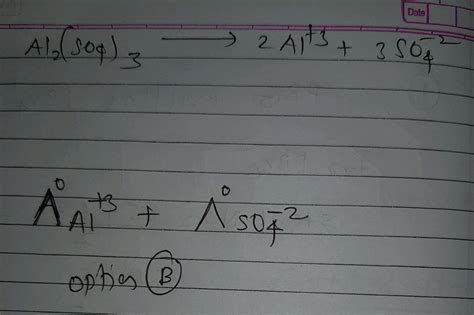 Date
Al₂(SO₄)₃ ⟶ 2Al⁺³ + 3SO₄⁻²
Λ⁰Al⁺³ + Λ⁰SO₄⁻²
option B